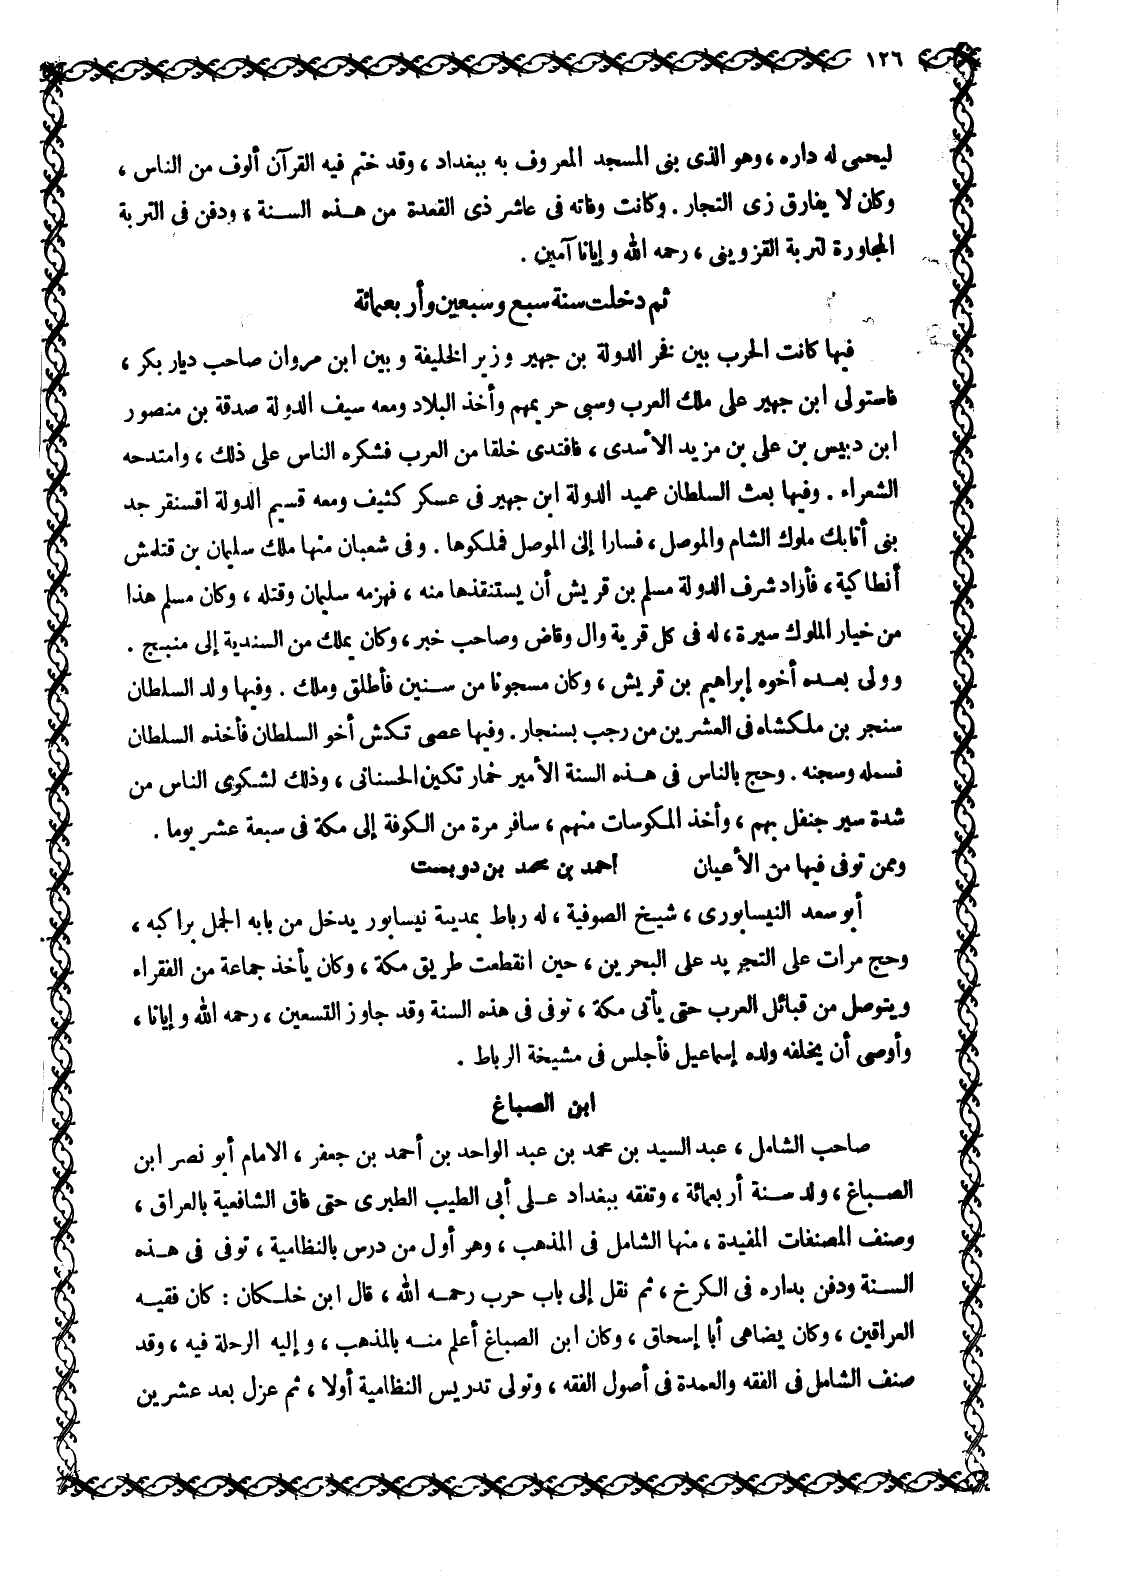 ١٢٦
ليحمى له داره ، وهو الذى بنى المسجد المعروف به ببغداد ، وقد ختم فيه القرآن ألوف من الناس ،
وكان لا يفارق زى التجار . وكانت وفاته فى عاشر ذى القعدة من هذه السنة ، ودفن فى التربة
المجاورة لتربة القزوينى ، رحمه الله وإيانا آمين .
ثم دخلت سنة سبع وسبعين وأربعمائة
فيها كانت الحرب بين فخر الدولة بن جهير وزير الخليفة وبين ابن مروان صاحب ديار بكر ،
فاستولى ابن جهير على ملك العرب وسبى حريمهم وأخذ البلاد ومعه سيف الدولة صدقة بن منصور
ابن دبيس بن على بن مزيد الأسدى ، فافتدى خلقا من العرب فشكره الناس على ذلك ، وامتدحه
الشعراء . وفيها بعث السلطان عميد الدولة ابن جهير فى عسكر كثيف ومعه قسيم الدولة اقسنقر جد
بنى أتابك ملوك الشام والموصل ، فسارا إلى الموصل فملكوها . وفى شعبان منها ملك سليمان بن قتلمش
أنطاكية ، فأراد شرف الدولة مسلم بن قريش أن يستنقذها منه ، فهزمه سليمان وقتله ، وكان مسلم هذا
من خيار الملوك سيرة ، له فى كل قرية وال وقاض وصاحب خبر ، وكان يملك من السندية إلى منبج .
وولى بعده أخوه إبراهيم بن قريش ، وكان مسجونا من سنين فأطلق وملك . وفيها ولد السلطان
سنجر بن ملكشاه فى العشرين من رجب بسنجار . وفيها عصى تكش أخو السلطان فأخذه السلطان
فسمله وسجنه . وحج بالناس فى هذه السنة الأمير خمار تكين الحسنانى ، وذلك لشكوى الناس من
شدة سير جنفل بهم ، وأخذ المكوسات منهم ، سافر مرة من الكوفة إلى مكة فى سبعة عشر يوما .
وممن توفى فيها من الأعيان أحمد بن محمد بن دوست
أبو سعد النيسابورى ، شيخ الصوفية ، له رباط بمدينة نيسابور يدخل من بابه الجمل براكبه ،
وحج مرات على التجريد على البحرين ، حين انقطعت طريق مكة ، وكان يأخذ جماعة من الفقراء
ويتوصل من قبائل العرب حتى يأتى مكة ، توفى فى هذه السنة وقد جاوز التسعين ، رحمه الله وإيانا ،
وأوصى أن يخلفه ولده إسماعيل فأجلس فى مشيخة الرباط .
ابن الصباغ
صاحب الشامل ، عبد السيد بن محمد بن عبد الواحد بن أحمد بن جعفر ، الامام أبو نصر ابن
الصباغ ، ولد سنة أربعمائة ، وتفقه ببغداد على أبى الطيب الطبرى حتى فاق الشافعية بالعراق ،
وصنف المصنفات المفيدة ، منها الشامل فى المذهب ، وهو أول من درس بالنظامية ، توفى فى هذه
السنة ودفن بداره فى الكرخ ، ثم نقل إلى باب حرب رحمه الله ، قال ابن خلكان : كان فقيه
العراقين ، وكان يضاهى أبا إسحاق ، وكان ابن الصباغ أعلم منه بالمذهب ، وإليه الرحلة فيه ، وقد
صنف الشامل فى الفقه والعمدة فى أصول الفقه ، وتولى تدريس النظامية أولا ، ثم عزل بعد عشرين